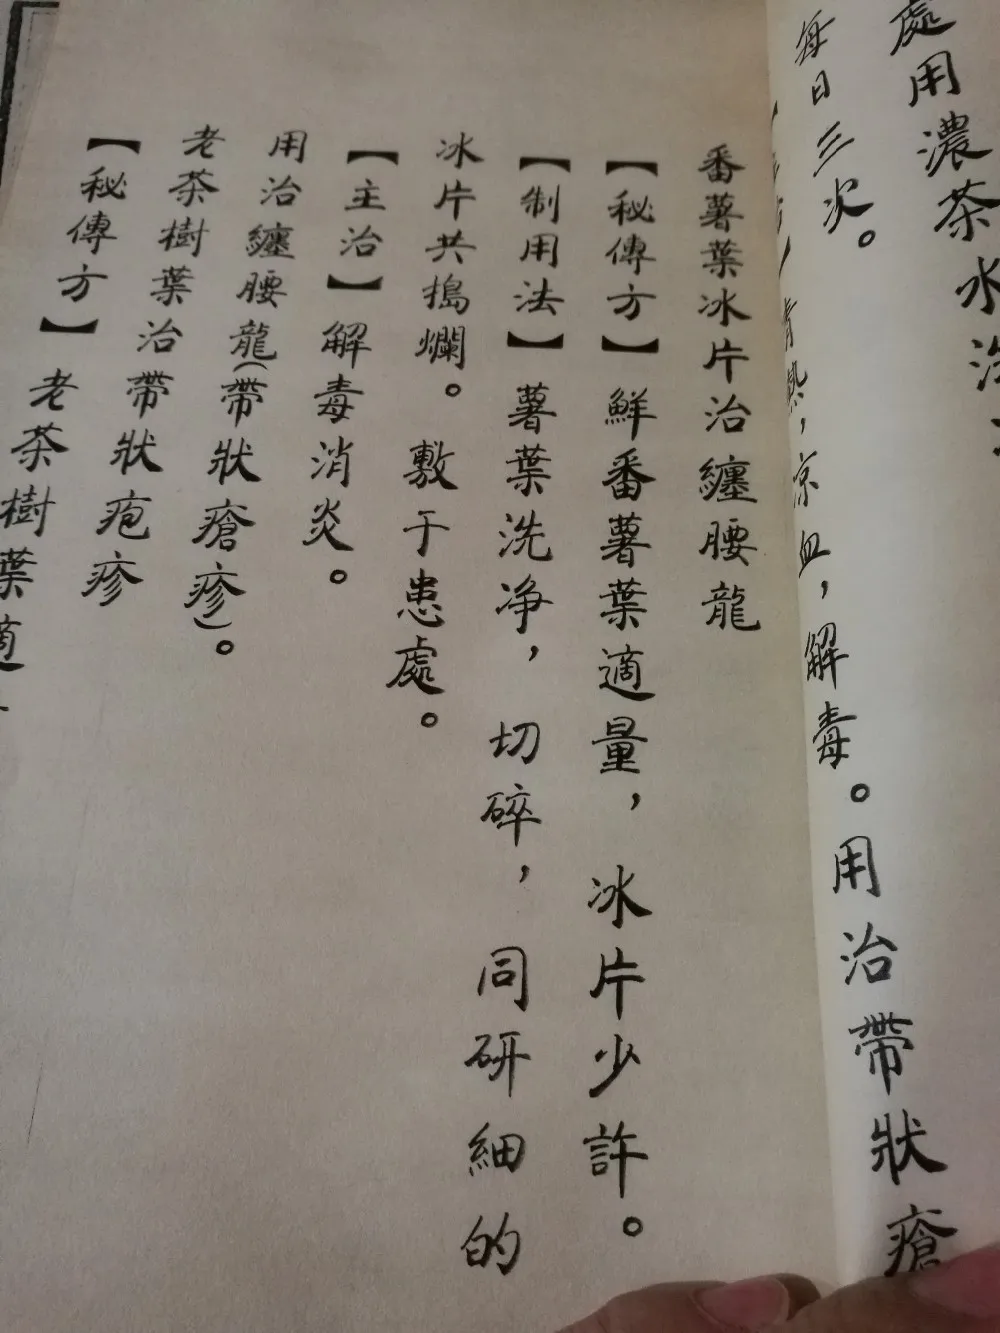 處用濃茶水洗
每日三次。
清熱，涼血，解毒。用治帶狀瘡
番薯葉冰片治纏腰龍
【秘傳方】鮮番薯葉適量，冰片少許。
【制用法】薯葉洗净，切碎，同研細的
冰片共搗爛。敷于患處。
【主治】解毒消炎。
用治纏腰龍(帶狀瘡疹)。
老茶樹葉治帶狀疱疹
【秘傳方】老茶樹葉適